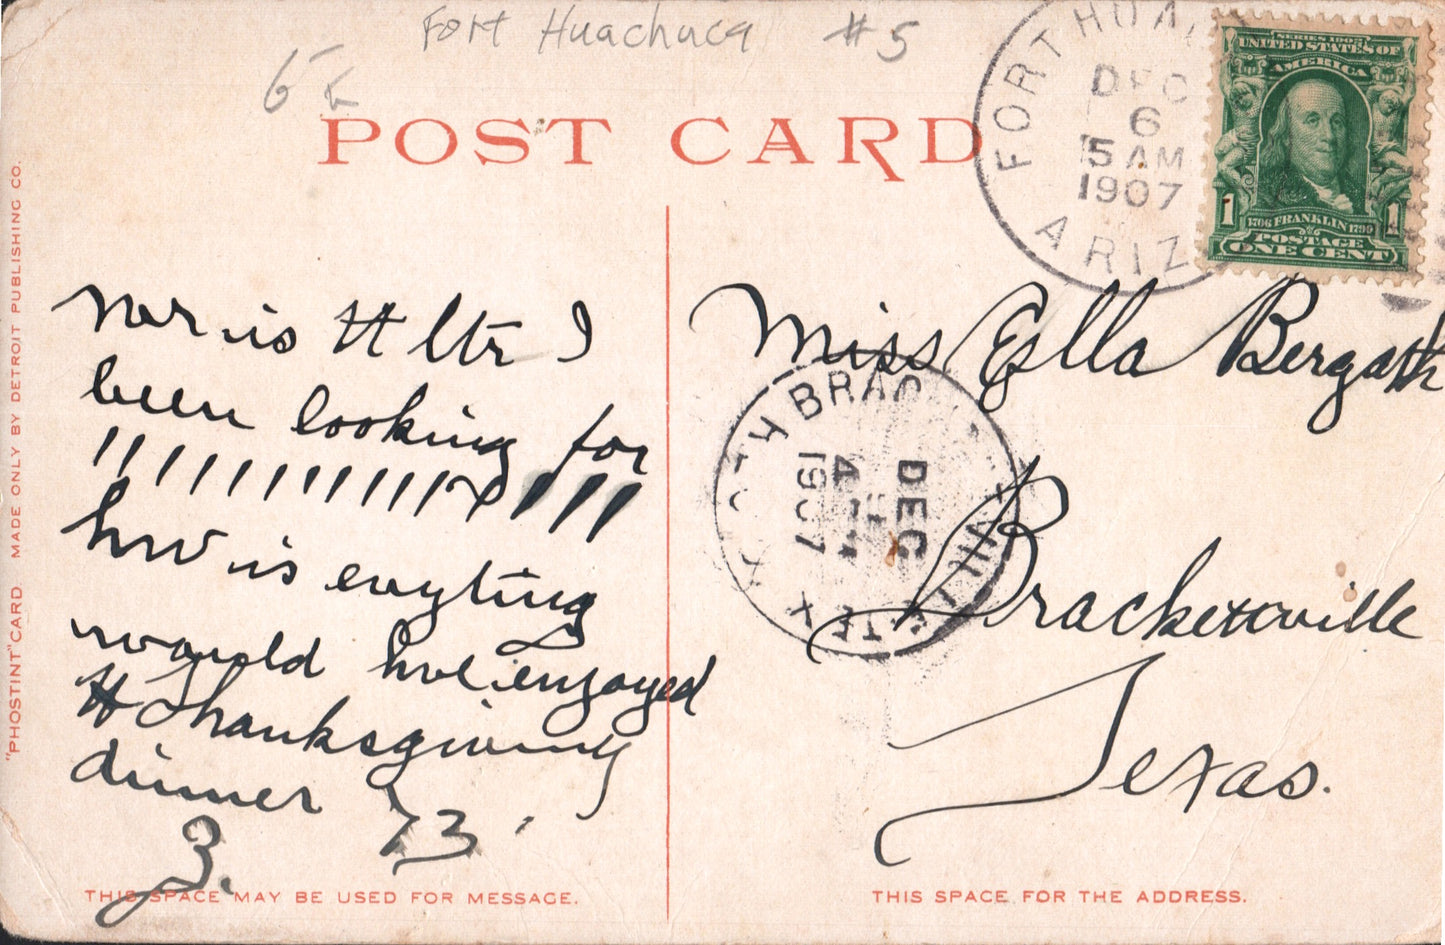 Fort Huachuca #5
POST CARD
FORT HUA
DEC
6
5 AM
1907
ARIZ
SERIES 1902
UNITED STATES OF
AMERICA
1 1706 FRANKLIN 1790 1
POSTAGE
ONE CENT
"PHOSTINT" CARD MADE ONLY BY DETROIT PUBLISHING CO.
is tt ltr I
been looking for
!!!!!!!!!!!
hw is evryting
would hve enjoyed
tt Thanksgiving
dinner 73.
Miss Ella
Brackettville
Texas.
DEC
1907
TEX
THIS SPACE MAY BE USED FOR MESSAGE.
THIS SPACE FOR THE ADDRESS.